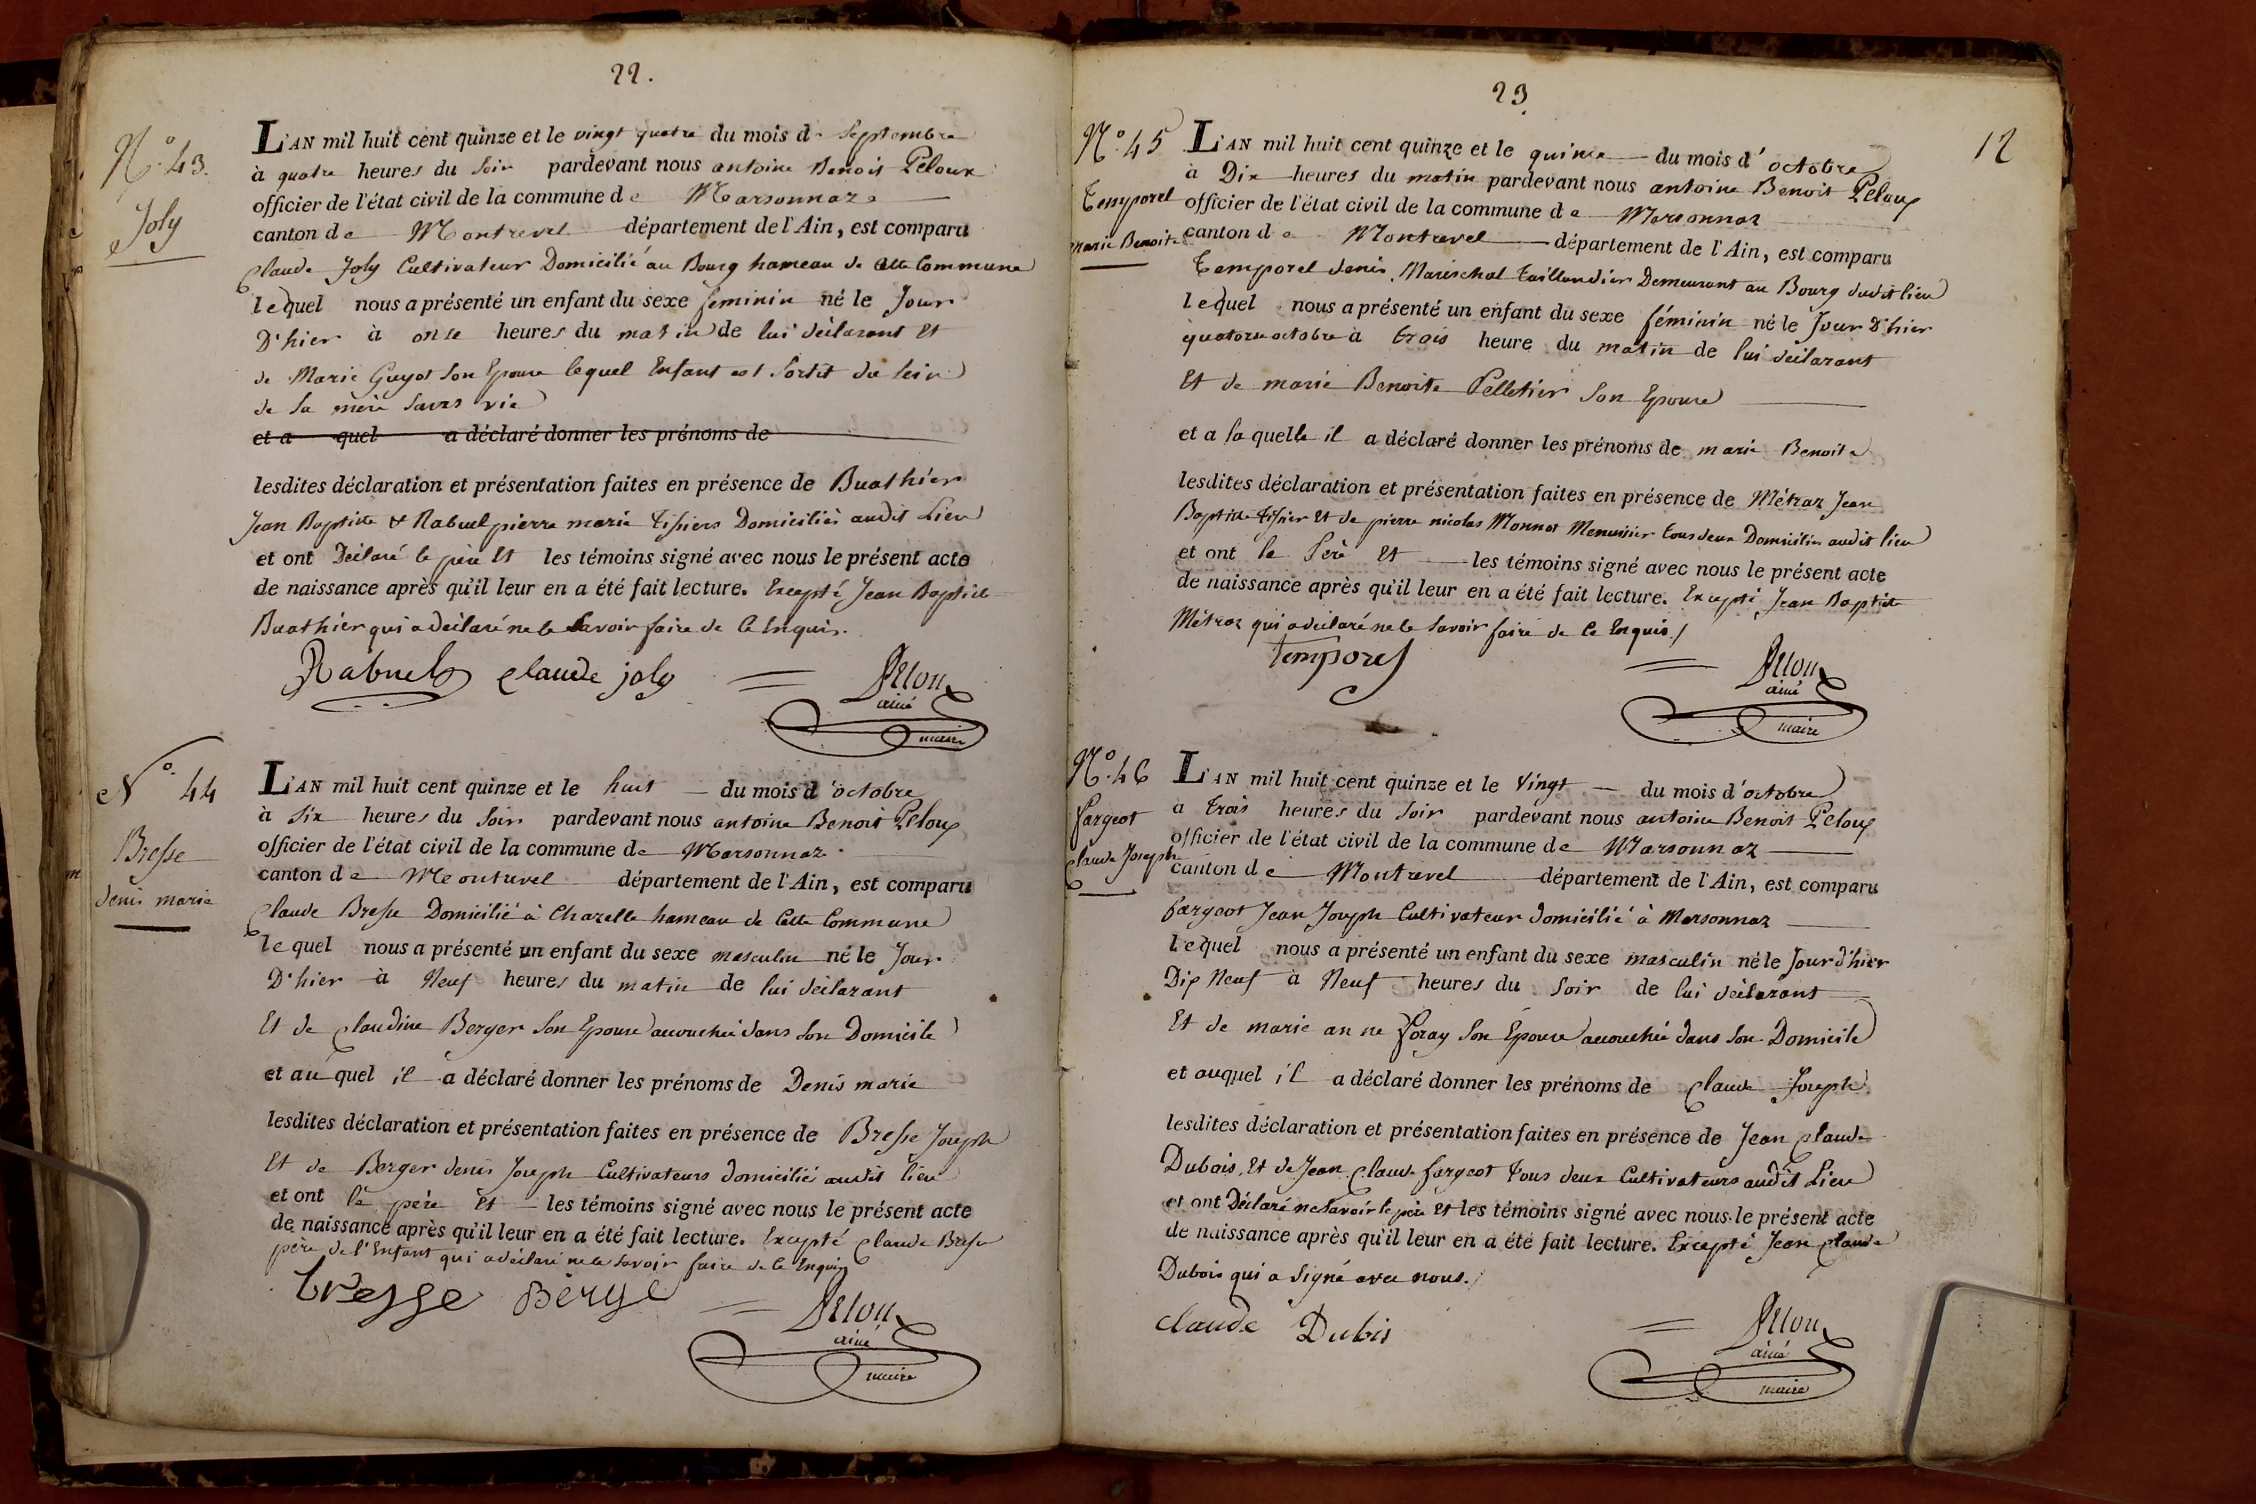 22.
N.º 43.
Joly
L'AN mil huit cent quinze et le vingt quatre du mois de Septembre
à quatre heures du Soir pardevant nous antoine Benoit Peloux
officier de l'état civil de la commune de Marsonnaz
canton de Montrevel département de l'Ain, est comparu
Claude Joly Cultivateur Domicilié au Bourg hameau de Cette Commune
lequel nous a présenté un enfant du sexe féminin né le Jour
D'hier à onze heures du matin de lui déclarant Et
de Marie Guyot Son Epouse lequel Enfant est Sortit du Sein
de Sa mère Sans vie
et a quel a déclaré donner les prénoms de
lesdites déclaration et présentation faites en présence de Buathier
Jean Baptiste & Rabuel pierre marie tissiers Domiciliés audit Lieu
et ont Déclaré le père Et les témoins signé avec nous le présent acte
de naissance après qu'il leur en a été fait lecture. Excepté Jean Baptiste
Buathier qui a déclaré ne le Savoir faire de Ce Enquis.
Rabuel Claude joly Peloux
ainé
maire
N.º 44
Bresse
denis marie
L'AN mil huit cent quinze et le huit du mois d'octobre
à Six heures du Soir pardevant nous antoine Benoit Peloux
officier de l'état civil de la commune de Marsonnaz
canton de Montrevel département de l'Ain, est comparu
Claude Bresse Domicilié à Chazelle hameau de Cette Commune
lequel nous a présenté un enfant du sexe masculin né le Jour
D'hier à Neuf heures du matin de lui déclarant
Et de Claudine Berger Son Epouse accouchée dans Son Domicile
et au quel il a déclaré donner les prénoms de Denis marie
lesdites déclaration et présentation faites en présence de Bresse Joseph
Et de Berger denis Joseph Cultivateurs domicilié audit lieu
et ont le père Et les témoins signé avec nous le présent acte
de naissance après qu'il leur en a été fait lecture. Excepté Claude Bresse
père de l'Enfant qui a déclaré ne le Savoir faire de Ce Enquis
bresse Berge Peloux
ainé
maire
23
12
N.º 45
Temporel
marie Benoite
L'AN mil huit cent quinze et le quinze du mois d'octobre
à Dix heures du matin pardevant nous antoine Benoit Peloux
officier de l'état civil de la commune de Marsonnaz
canton de Montrevel département de l'Ain, est comparu
Temporel denis Maréschal taillandier Demeurant au Bourg dudit lieu
lequel nous a présenté un enfant du sexe féminin né le Jour D'hier
quatorze octobre à trois heure du matin de lui déclarant
Et de marie Benoite Pelletier Son Epouse
et a laquelle il a déclaré donner les prénoms de marie Benoite
lesdites déclaration et présentation faites en présence de Métraz Jean
Baptiste tissier Et de pierre nicolas Monnet Menuisier tous deux Domiciliés audit lieu
et ont le Père Et les témoins signé avec nous le présent acte
de naissance après qu'il leur en a été fait lecture. Excepté Jean Baptiste
Métraz qui a déclaré ne le Savoir faire de Ce Enquis./
Temporel Peloux
ainé
maire
N.º 46
fargeot
Claude Joseph
L'AN mil huit cent quinze et le Vingt du mois d'octobre
à trois heures du Soir pardevant nous antoine Benoit Peloux
officier de l'état civil de la commune de Marsonnaz
canton de Montrevel département de l'Ain, est comparu
fargeot Jean Joseph Cultivateur domicilié à Marsonnaz
lequel nous a présenté un enfant du sexe masculin né le Jour d'hier
Dix Neuf à Neuf heures du Soir de lui déclarant
Et de marie anne foray Son Epouse accouchée dans Son Domicile
et auquel il a déclaré donner les prénoms de Claude Joseph
lesdites déclaration et présentation faites en présence de Jean Claude
Dubois, Et de Jean Claude fargeot tous deux Cultivateurs audit Lieu
et ont Déclaré ne Savoir le père Et les témoins signé avec nous le présent acte
de naissance après qu'il leur en a été fait lecture. Excepté Jean Claude
Dubois qui a Signé avec nous./
Claude Dubis Peloux
ainé
maire